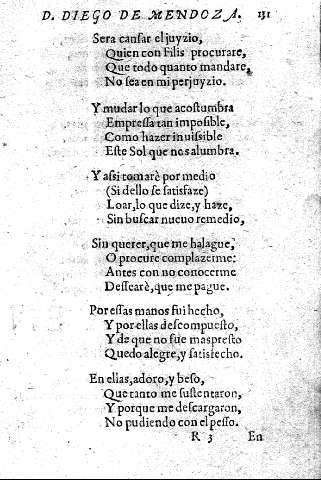 D. DIEGO DE MENDOZA. 131
Sera canſar el juyzio,
Quien con Filis procurare,
Que todo quanto mandare,
No ſea en mi perjuyzio.
Y mudar lo que acoſtumbra
Empreſſa tan impoſible,
Como hazer inuiſsible
Eſte Sol que nos alumbra.
Y aſsi tomarè por medio
(Si dello ſe ſatisfaze)
Loar, lo que dize, y haze,
Sin buſcar nueuo remedio,
Sin querer, que me halague,
O procure complazerme:
Antes con no conocerme
Deſſearè, que me pague.
Por eſſas manos fui hecho,
Y por ellas deſcompueſto,
Y de que no fue mas preſto
Quedo alegre, y ſatisfecho.
En ellas, adoro, y beſo,
Que tanto me ſuſtentaron,
Y porque me deſcargaron,
No pudiendo con el peſſo.
R 3 En